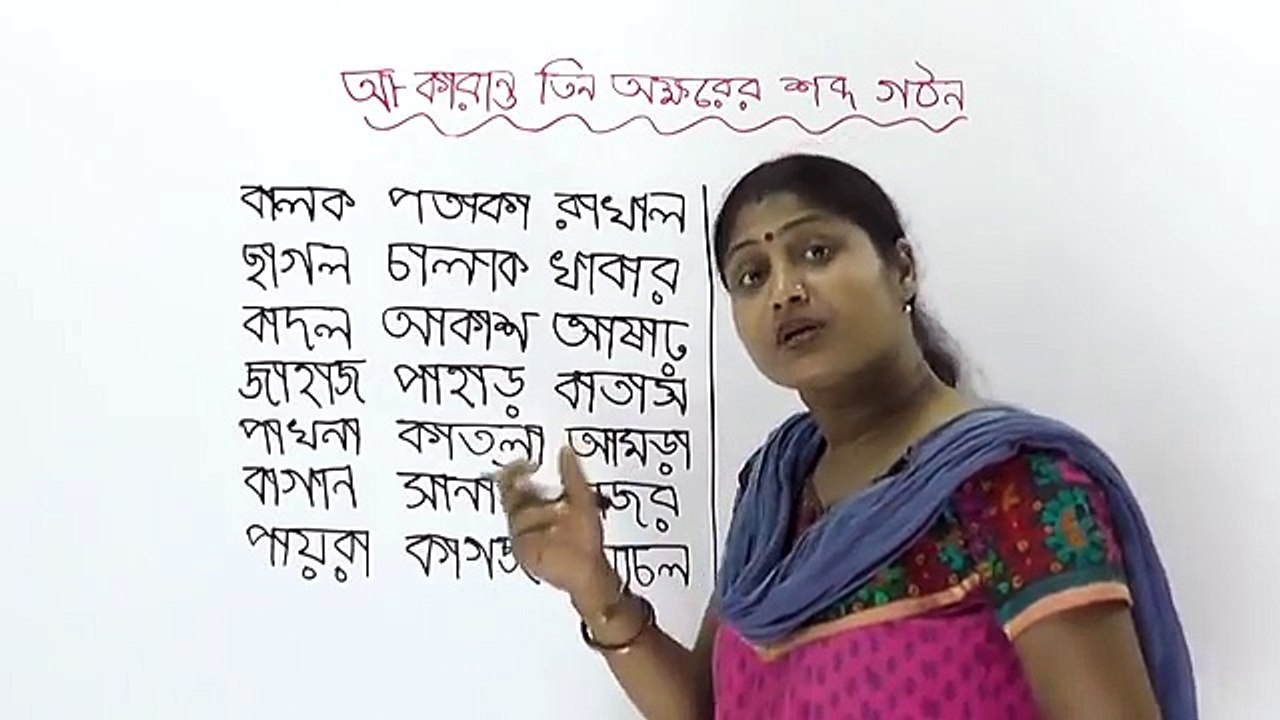 আ-কারান্ত তিন অক্ষরের শব্দ গঠন
বালক পতাকা রাখাল
ছাগল চালাক খাবার
বাদল আকাশ আষাঢ়
জাহাজ পাহাড় বাতাস
পাখনা কাতলা আমড়া
বাগান
পায়রা কাগজ